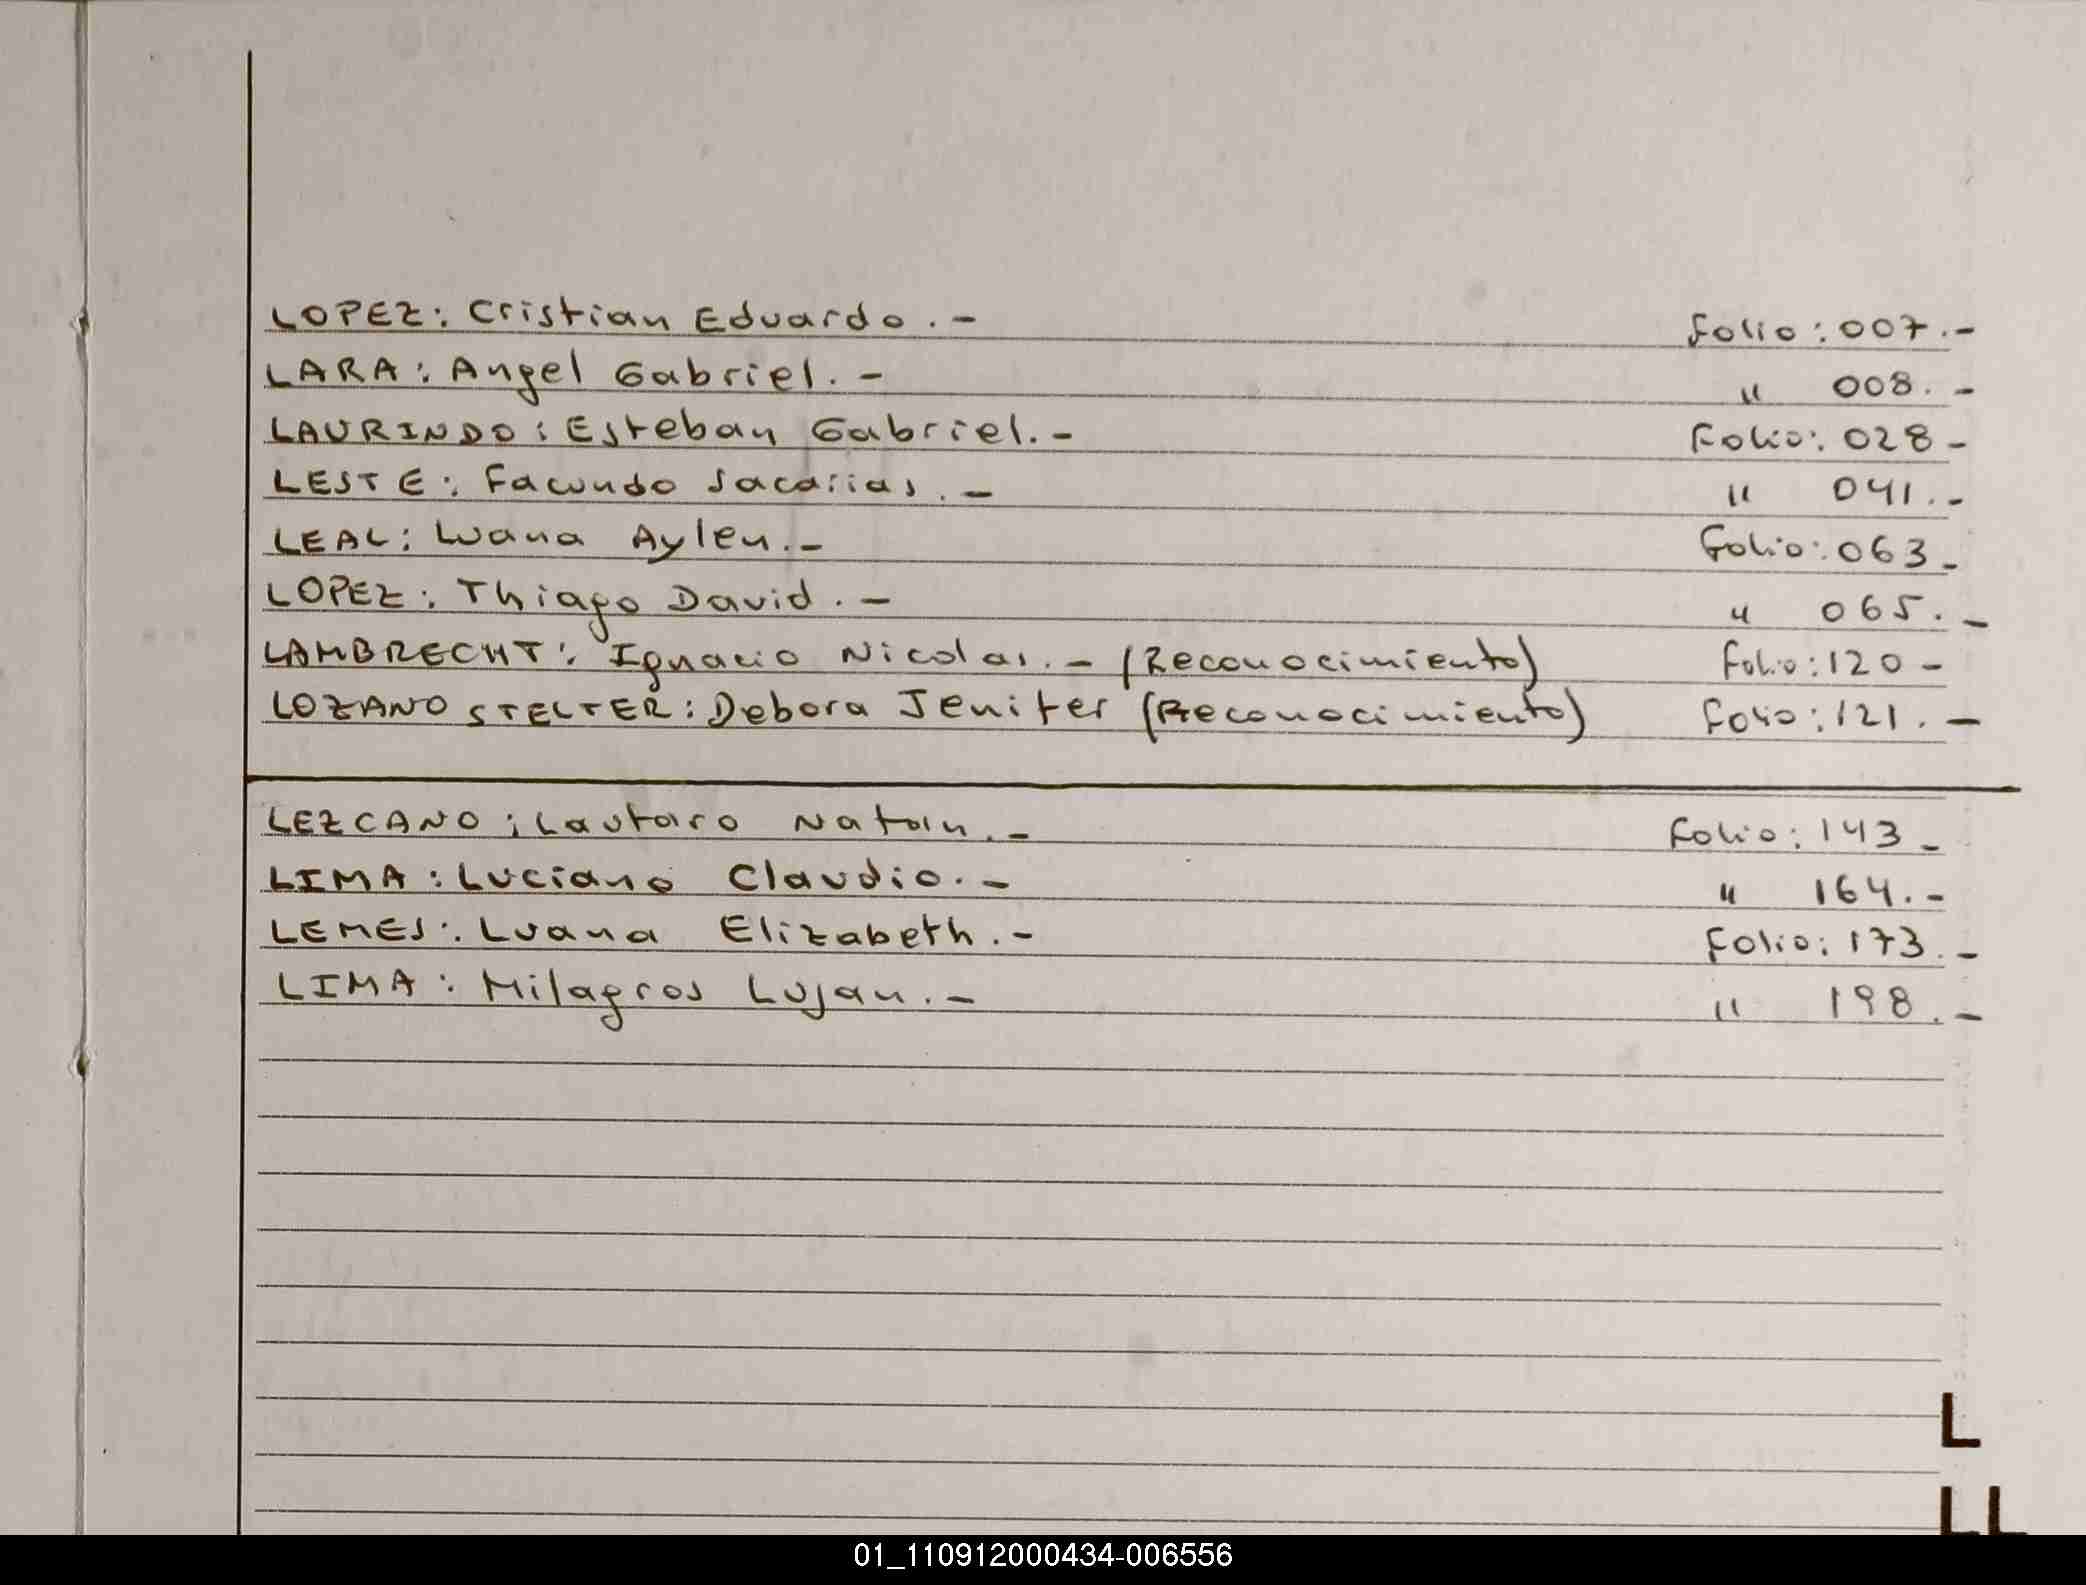 LOPEZ: Cristian Eduardo.- Folio: 007.-
LARA: Angel Gabriel.- " 008.-
LAURINDO: Esteban Gabriel.- Folio: 028-
LESTE: Facundo Sacarias.- " 041.-
LEAL: Luana Aylen.- Folio: 063-
LOPEZ: Thiago David.- " 065.-
LAMBRECHT: Ignacio Nicolas.- (Reconocimiento) Folio: 120-
LOZANO STELTER: Debora Jenifer (Reconocimiento) Folio: 121.-
LEZCANO: Lautaro Natan.- Folio: 143-
LIMA: Luciano Claudio.- " 164.-
LEMES: Luana Elizabeth.- Folio: 173.-
LIMA: Milagros Lujan.- " 198.-
L
LL
01_110912000434-006556